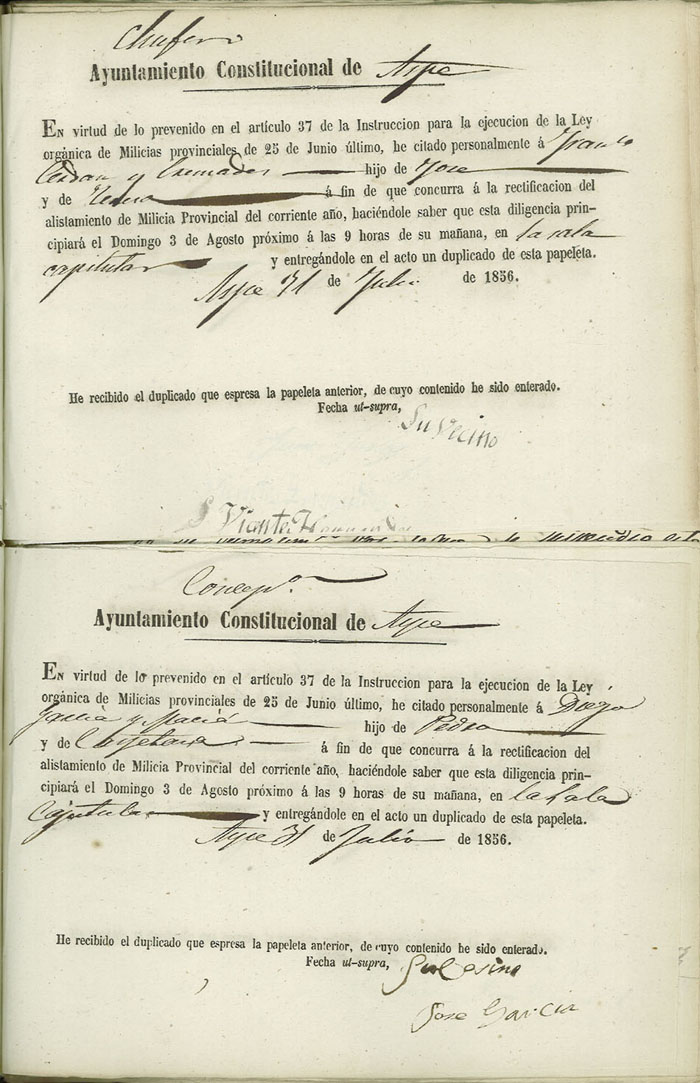 Chufero
Ayuntamiento Constitucional de Aspe
EN virtud de lo prevenido en el artículo 37 de la Instruccion para la ejecucion de la Ley
orgánica de Milicias provinciales de 25 de Junio último, he citado personalmente á Franco
Cerdan y Cremades hijo de Jose
y de Teresa á fin de que concurra á la rectificacion del
alistamiento de Milicia Provincial del corriente año, haciéndole saber que esta diligencia prin-
cipiará el Domingo 3 de Agosto próximo á las 9 horas de su mañana, en la sala
capitular y entregándole en el acto un duplicado de esta papeleta.
Aspe 31 de Julio de 1856.
He recibido el duplicado que espresa la papeleta anterior, de cuyo contenido he sido enterado.
Fecha ut-supra,
Su Vecino
Vicente
Concepn.
Ayuntamiento Constitucional de Aspe
EN virtud de lo prevenido en el artículo 37 de la Instruccion para la ejecucion de la Ley
orgánica de Milicias provinciales de 25 de Junio último, he citado personalmente á Diego
Garcia y Maciá hijo de Pedro
y de Cayetana á fin de que concurra á la rectificacion del
alistamiento de Milicia Provincial del corriente año, haciéndole saber que esta diligencia prin-
cipiará el Domingo 3 de Agosto próximo á las 9 horas de su mañana, en la Sala
Capitular y entregándole en el acto un duplicado de esta papeleta.
Aspe 31 de Julio de 1856.
He recibido el duplicado que espresa la papeleta anterior, de cuyo contenido he sido enterado.
Fecha ut-supra, Su Vesino
Jose Garcia